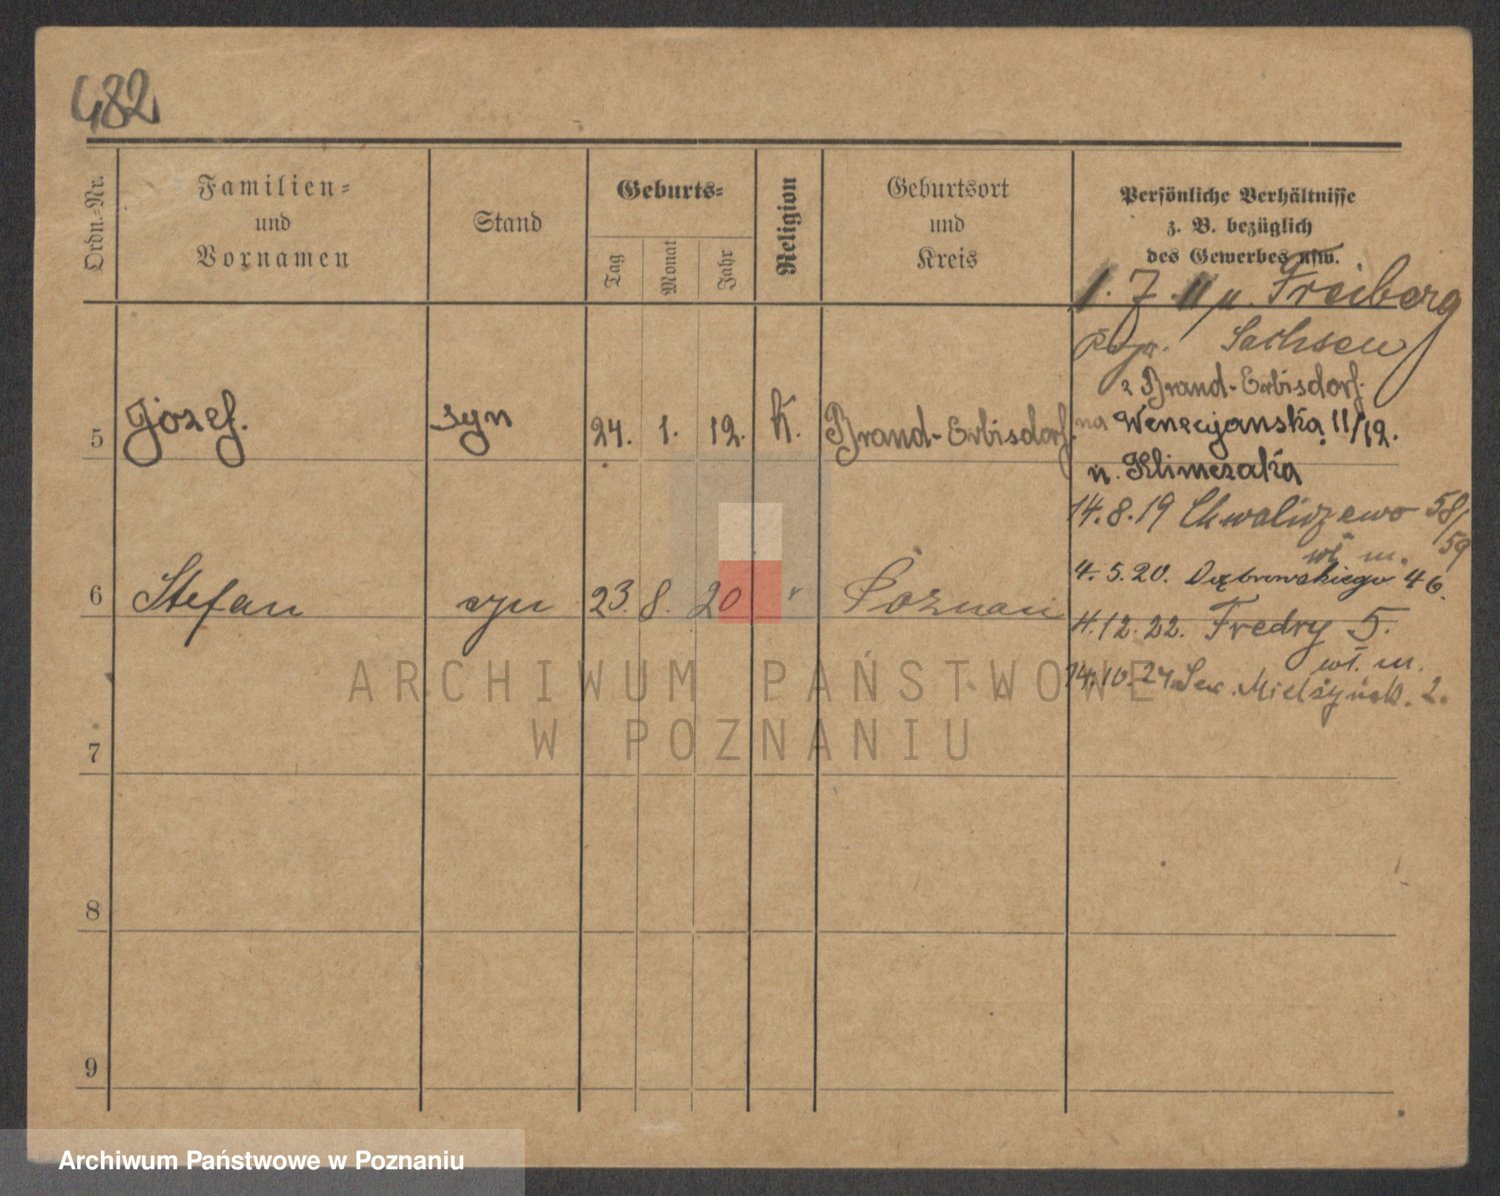 482
Ordn.-Nr.
Familien-
und
Vornamen
Stand
Geburts-
Tag
Monat
Jahr
Religion
Geburtsort
und
Kreis
Persönliche Verhältnisse
z. B. bezüglich
des Gewerbes usw.
Freiberg
Sachsen
z Brand-Erbisdorf.
5 Józef. syn 24. 1. 12. K. Brand-Erbisdorf. na Wenecjańska 11/12.
u. Klimczaka
14.8.19 Chwaliszewo 58/59
wł. m.
4.5.20. Dąbrowskiego 46.
6 Stefan syn 23. 8. 20 " Poznań
4.12.22. Fredry 5.
wł. m.
14.10.24 Sew. Mielżyńsk. 2.
7
8
9
ARCHIWUM PAŃSTWOWE
W POZNANIU
Archiwum Państwowe w Poznaniu